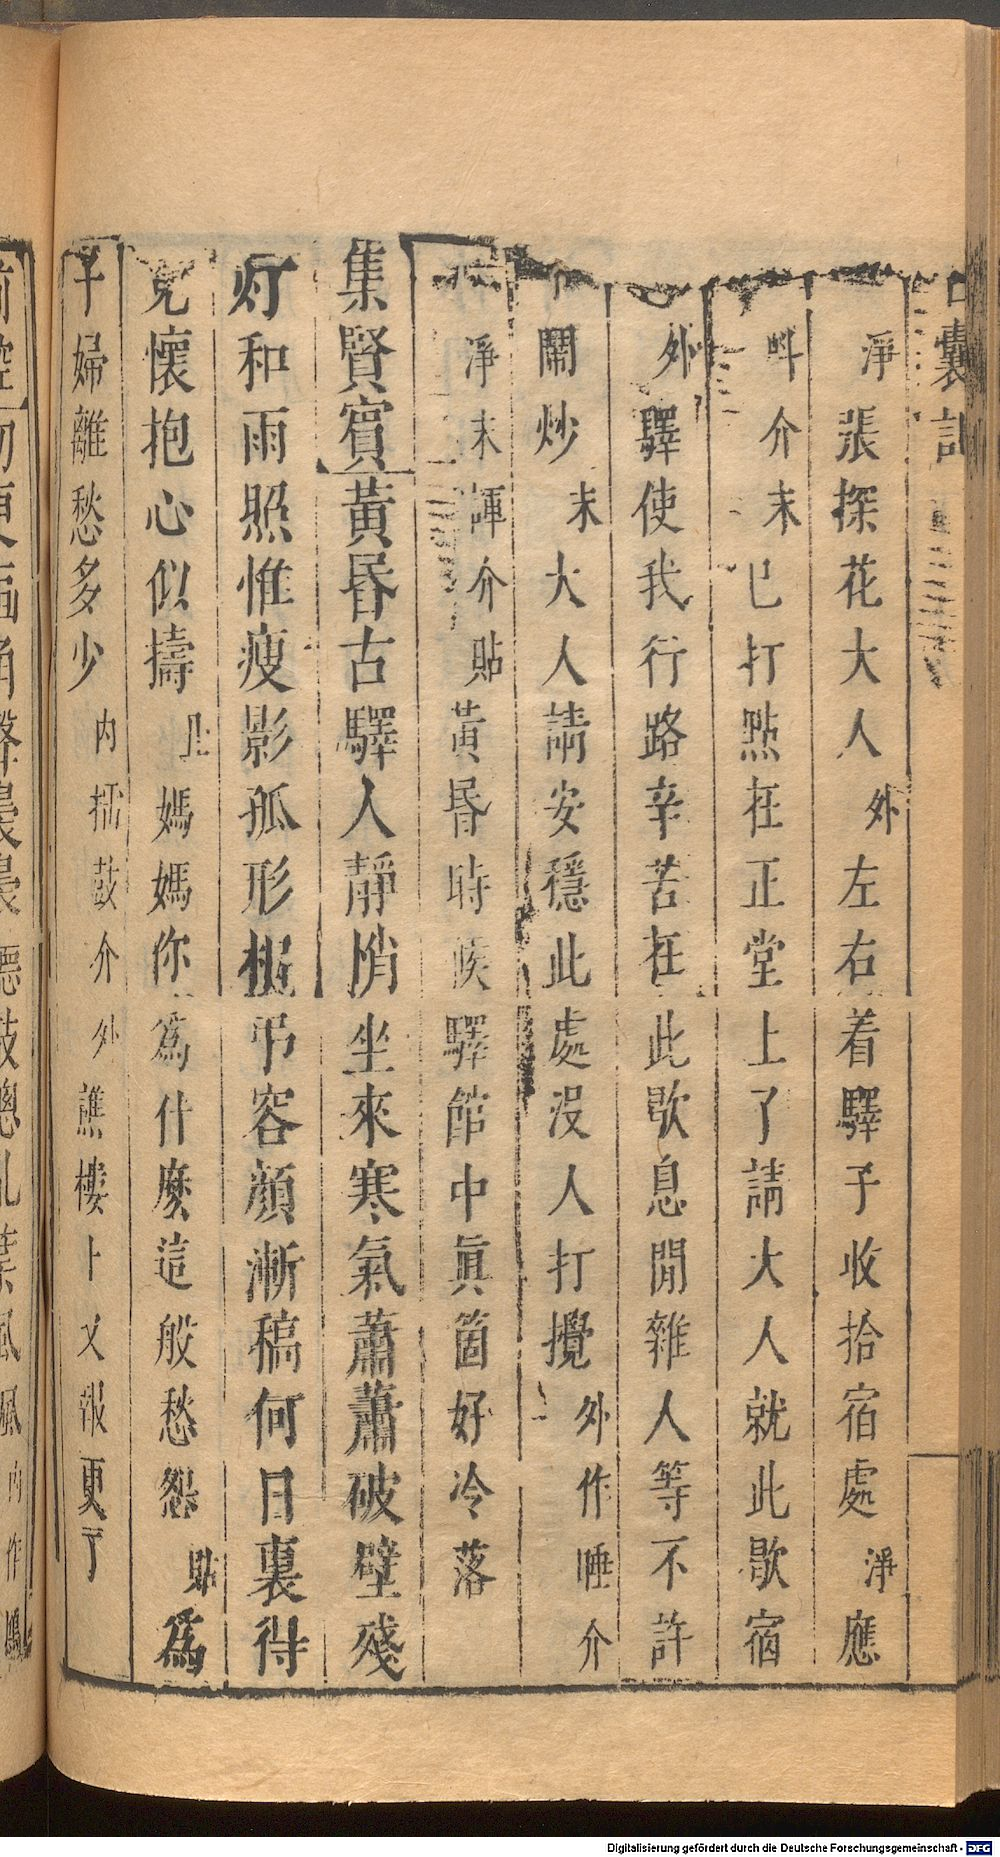 囊記
淨張探花大人外左右着驛子收拾宿處淨應
叫介末已打點在正堂上了請大人就此歇宿
外驛使我行路辛苦在此歇息閒雜人等不許
鬧炒末大人請安穩此處没人打攪外作睡介
淨末諢介貼黃昏時候驛館中眞箇好冷落
集賢賓黃昏古驛人靜悄坐來寒氣蕭蕭破壁殘
灯和雨照惟瘦影孤形相弔容顔漸稿何日裏得
免懷抱心似擣旦媽媽你爲什麽這般愁怨貼爲
子婦離愁多少内擂鼓介外譙樓上又報更了
Digitalisierung gefördert durch die Deutsche Forschungsgemeinschaft - DFG